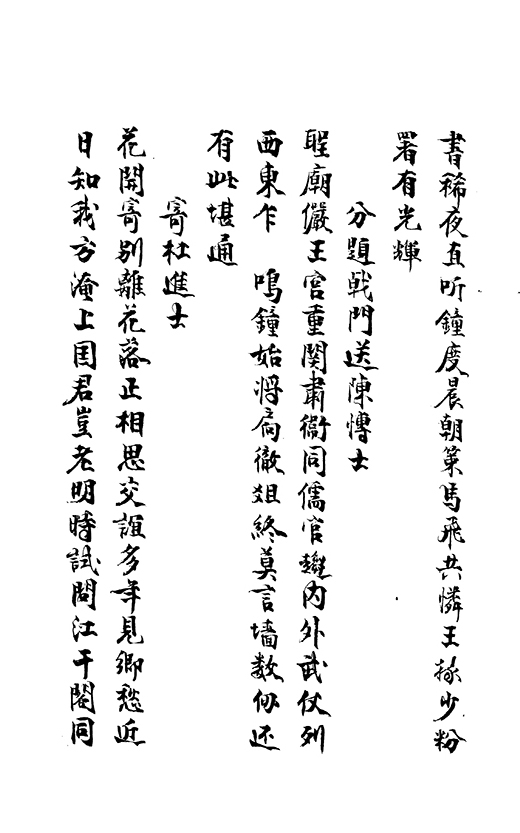 書稀夜直听鐘度晨朝策馬飛共憐王掾少粉
署有光輝
分題戟門送陳博士
聖廟儼王宮重関肅衛同儒官趨内外武仗列
西東乍 鳴鐘始将扄徹俎終莫言墻数仞还
有此堪通
寄杜進士
花開寄別離花落正相思交誼多年見鄉愁近
日知我方淹上国君豈老明時試問江干閣同